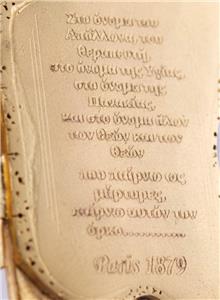 Στο όνομα του
Απόλλωνα του
θεραπευτή,
στο όνομα της Υγείας,
στο όνομα της
Πανακείας,
και στο όνομα όλων
των Θεών και των
Θεών
που παίρνω ως
μάρτυρες,
παίρνω αυτόν τον
όρκο.......
Paris 1879